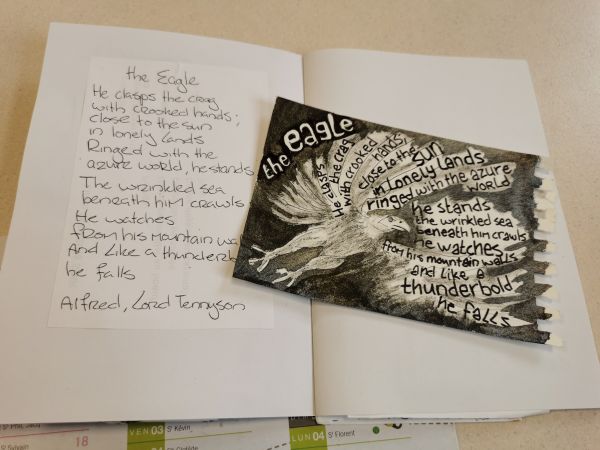 the Eagle
He clasps the crag
with crooked hands;
close to the sun
in lonely lands
Ringed with the
azure world, he stands
The wrinkled sea
beneath him crawls
He watches
from his mountain wa
And Like a thunderb
he falls
Alfred, Lord Tennyson
the eagle
He clasps
the crag
with crooked
hands;
close to the
sun
in lonely lands
ringed with the azure
world
he stands
the wrinkled sea
beneath him crawls
he watches
from his mountain walls
and like a
thunderbold
he falls
18
VEN 03 St Kévin
LUN 04 St Florent